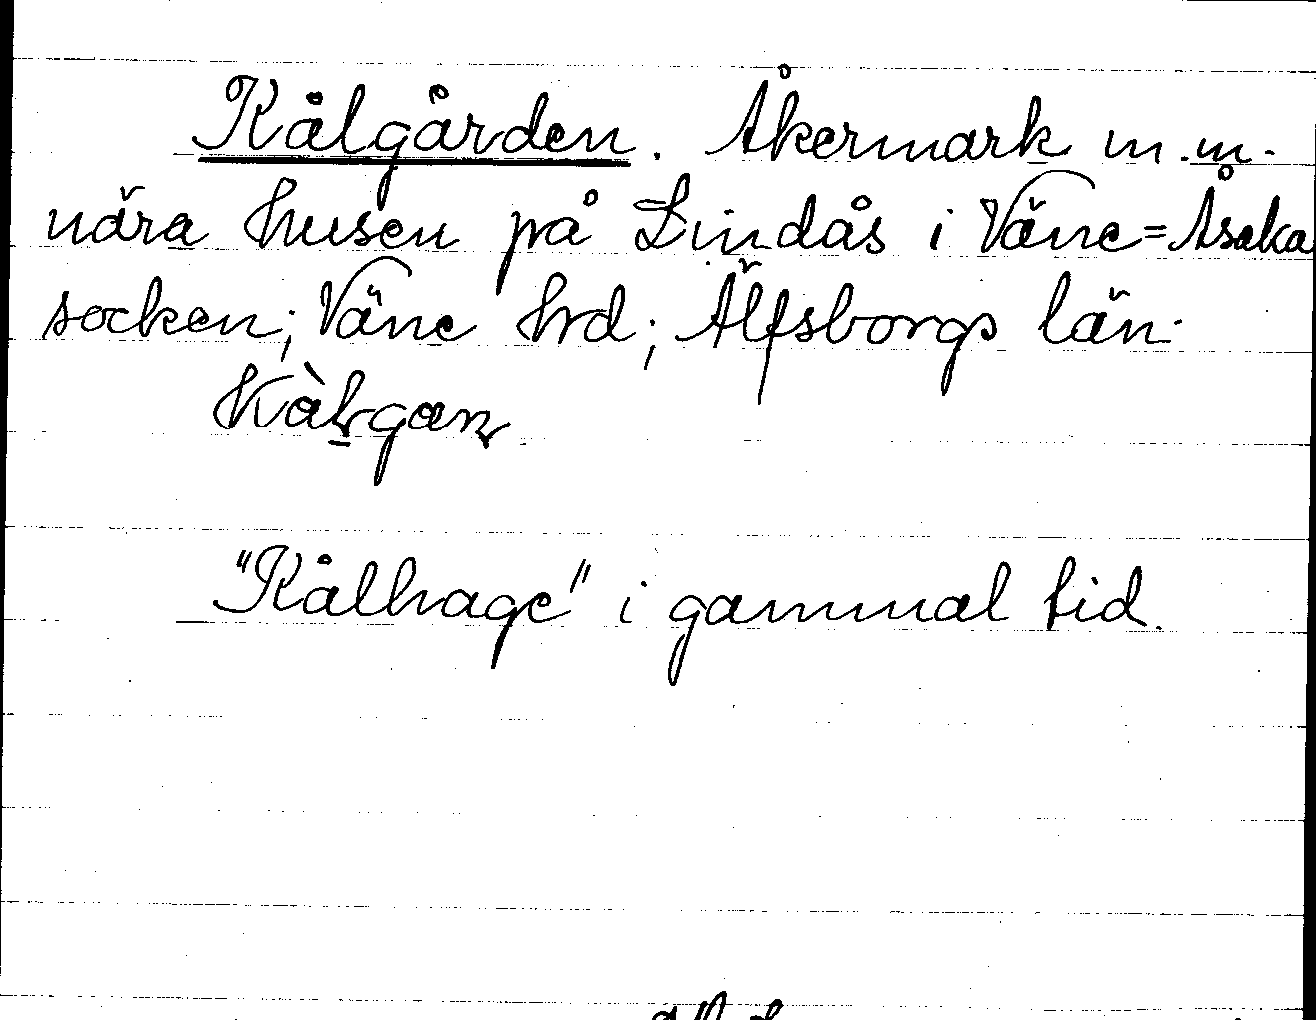 Kålgården. Åkermark m.m.
nära husen på Lindås i Väne=Åsaka
socken; Väne hrd; Älfsborgs län.
"Kålhage" i gammal tid.